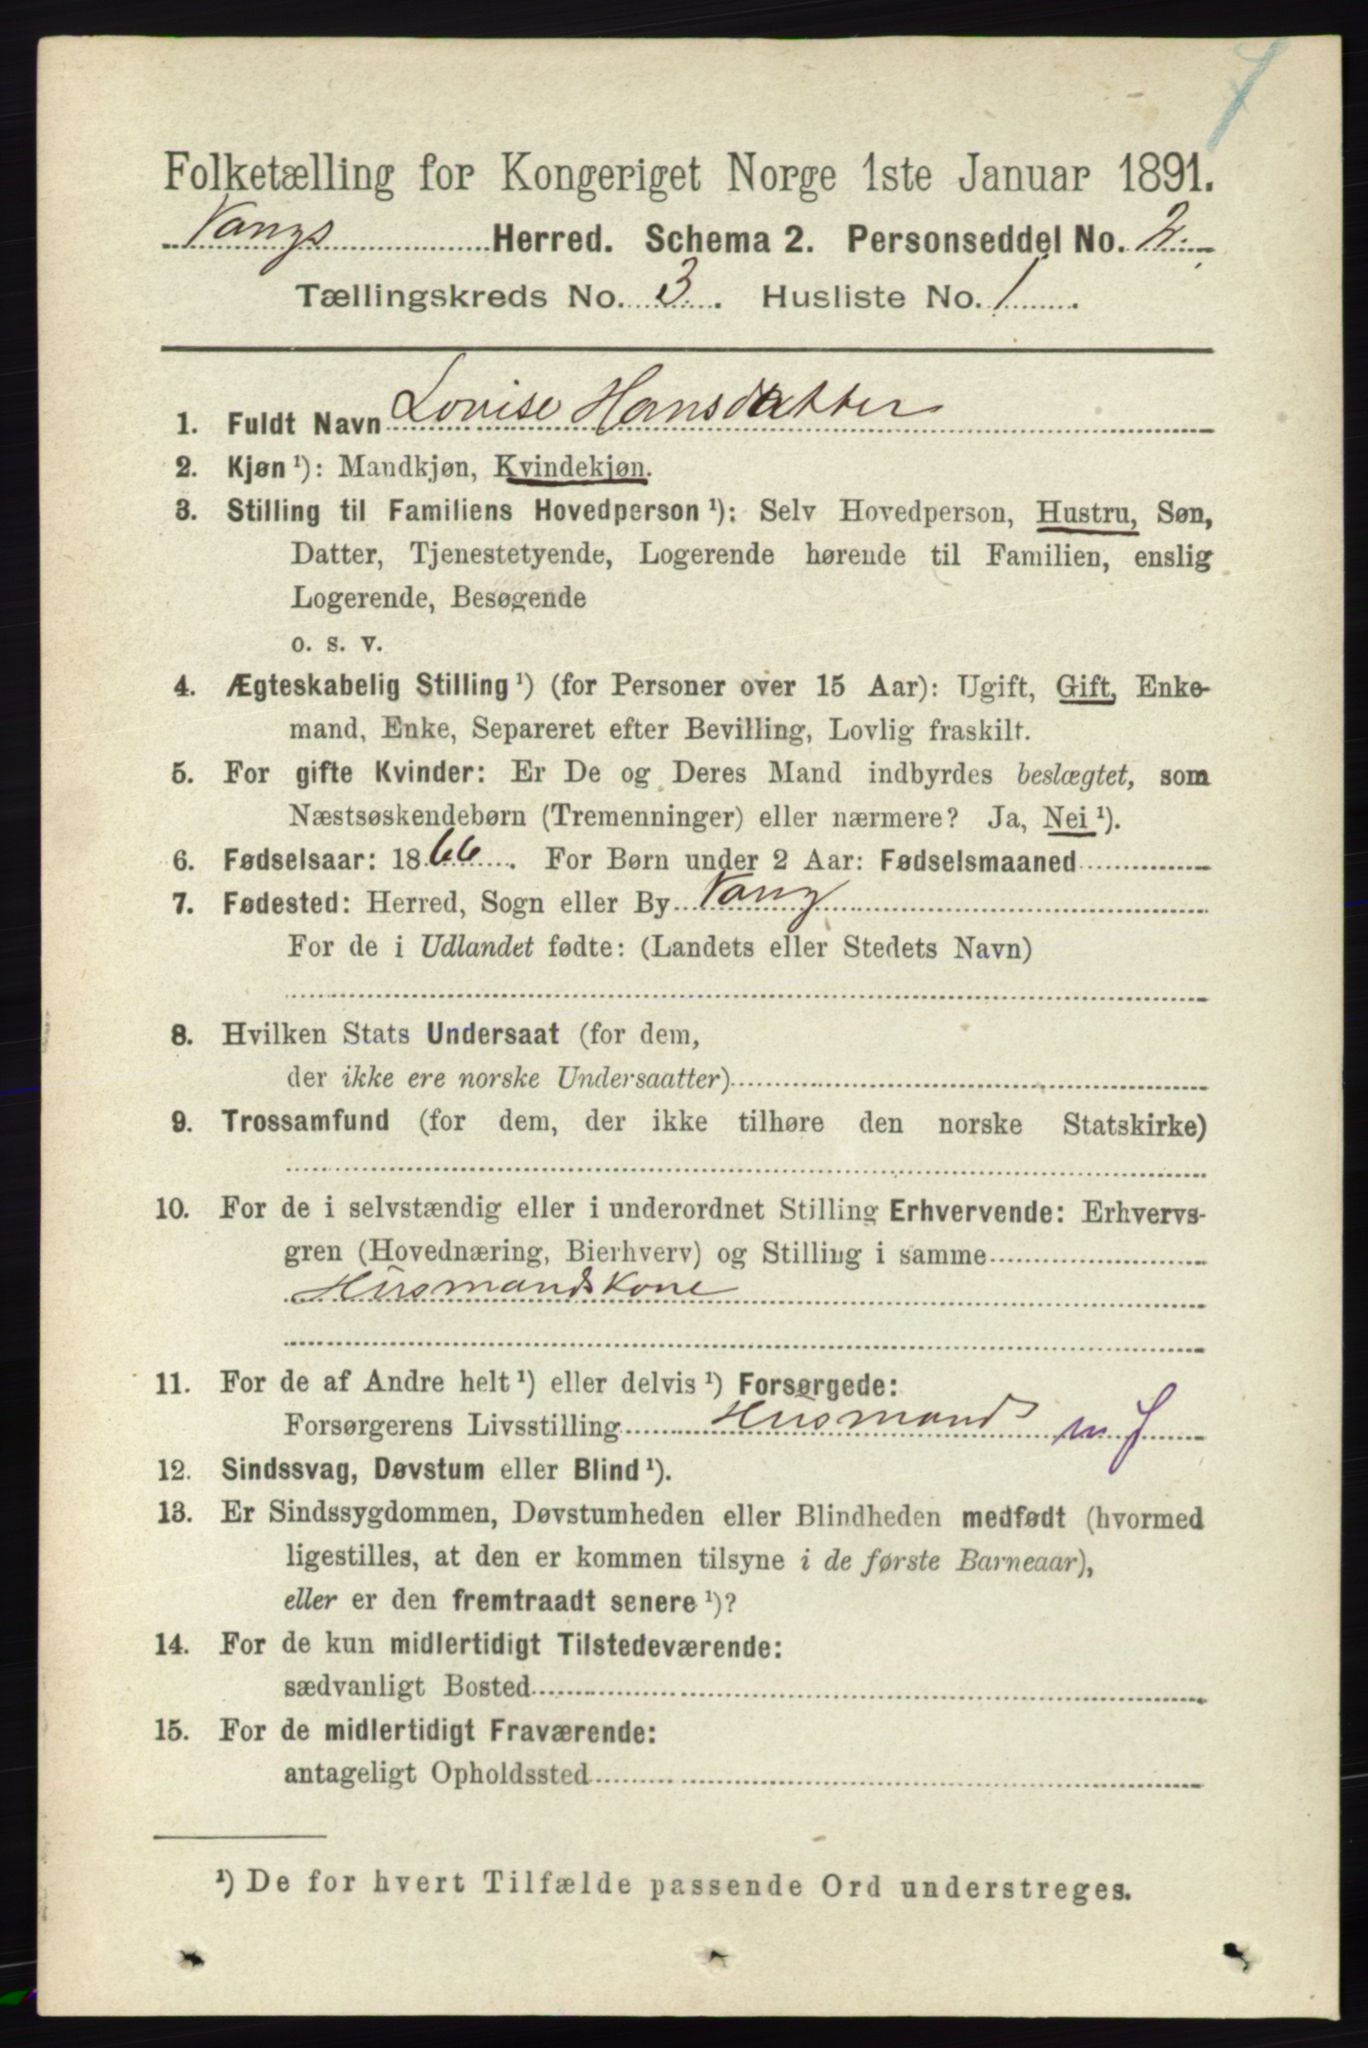 Folketælling for Kongeriget Norge 1ste Januar 1891.
Vangs Herred. Schema 2. Personseddel No. 2.
Tællingskreds No. 3. Husliste No. 1.
1. Fuldt Navn Lovise Hansdatter
2. Kjøn ¹): Mandkjøn, Kvindekjøn.
3. Stilling til Familiens Hovedperson ¹): Selv Hovedperson, Hustru, Søn,
Datter, Tjenestetyende, Logerende hørende til Familien, enslig
Logerende, Besøgende
o. s. v.
4. Ægteskabelig Stilling ¹) (for Personer over 15 Aar): Ugift, Gift, Enke-
mand, Enke, Separeret efter Bevilling, Lovlig fraskilt.
5. For gifte Kvinder: Er De og Deres Mand indbyrdes beslægtet, som
Næstsøskendebørn (Tremenninger) eller nærmere? Ja, Nei ¹).
6. Fødselsaar: 1866. For Børn under 2 Aar: Fødselsmaaned
7. Fødested: Herred, Sogn eller By Vang
For de i Udlandet fødte: (Landets eller Stedets Navn)
8. Hvilken Stats Undersaat (for dem,
der ikke ere norske Undersaatter)
9. Trossamfund (for dem, der ikke tilhøre den norske Statskirke)
10. For de i selvstændig eller i underordnet Stilling Erhvervende: Erhvervs-
gren (Hovednæring, Bierhverv) og Stilling i samme
Husmandskone
11. For de af Andre helt ¹) eller delvis ¹) Forsørgede:
Forsørgerens Livsstilling Husmand m J
12. Sindssvag, Døvstum eller Blind ¹).
13. Er Sindssygdommen, Døvstumheden eller Blindheden medfødt (hvormed
ligestilles, at den er kommen tilsyne i de første Barneaar),
eller er den fremtraadt senere ¹)?
14. For de kun midlertidigt Tilstedeværende:
sædvanligt Bosted
15. For de midlertidigt Fraværende:
antageligt Opholdssted
¹) De for hvert Tilfælde passende Ord understreges.